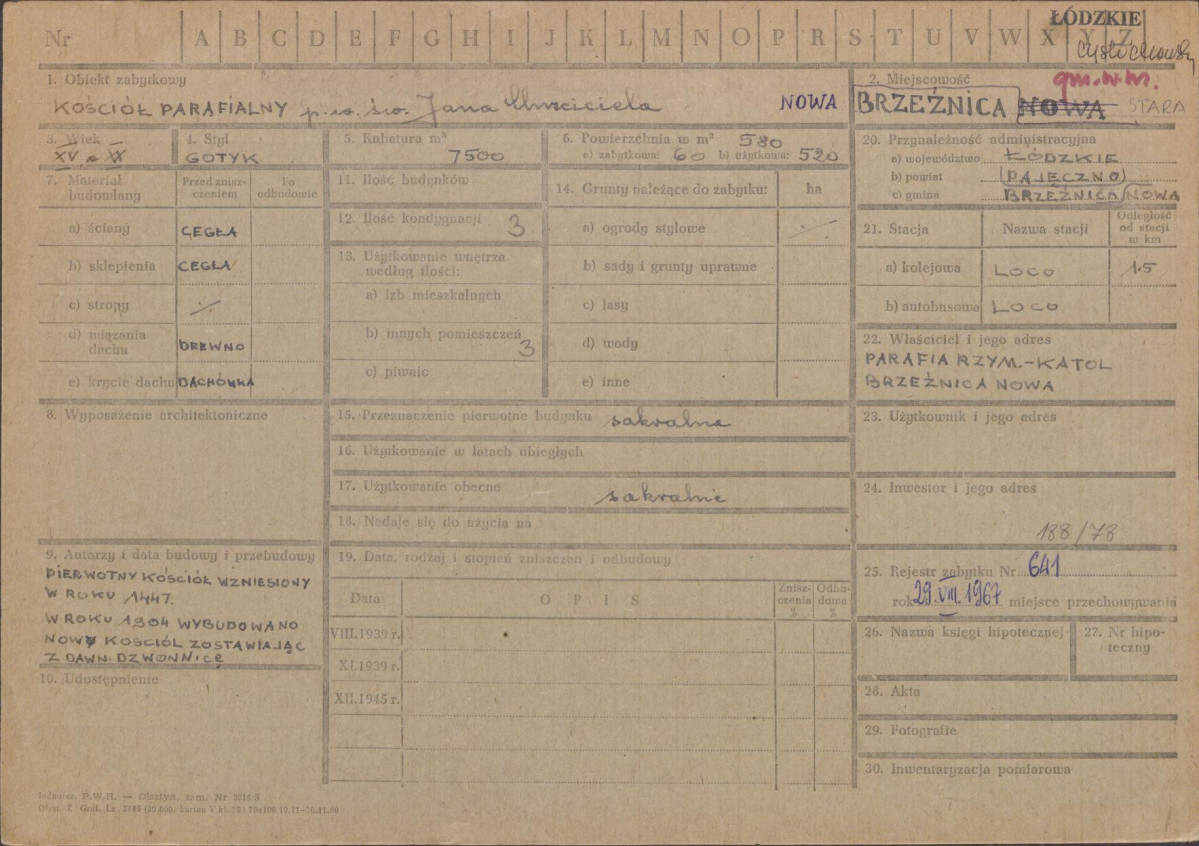 ŁÓDZKIE
Nr A B C D E F G H I J K L M N O P R S T U V W X Y Z
1. Obiekt zabytkowy
KOŚCIÓŁ PARAFIALNY p.w. św. Jana Chrzciciela NOWA
2. Miejscowość
BRZEŹNICA NOWA STARA
3. Wiek
XV XX
4. Styl
GOTYK
5. Kubatura m³
7500
6. Powierzchnia w m² 580
a) zabytkowa: 60 b) użytkowa: 520
7. Materiał budowlany
Przed zniszczeniem
Po odbudowie
a) ściany CEGŁA
b) sklepienia CEGŁA
c) stropy ·/·
d) wiązania dachu DREWNO
e) krycie dachu DACHÓWKA
8. Wyposażenie architektoniczne
9. Autorzy i data budowy i przebudowy
PIERWOTNY KOŚCIÓŁ WZNIESIONY
W ROKU 1447.
W ROKU 1904 WYBUDOWANO
NOWY KOŚCIÓŁ ZOSTAWIAJĄC
Z DAWN. DZWONNICĘ
10. Udostępnienie
11. Ilość budynków
12. Ilość kondygnacji 3
13. Użytkowanie wnętrza
według ilości:
a) izb mieszkalnych
b) innych pomieszczeń 3
c) piwnic
14. Grunty należące do zabytku: ha
a) ogrody stylowe ·/·
b) sady i grunty uprawne
c) lasy
d) wody
e) inne
15. Przeznaczenie pierwotne budynku sakralne
16. Użytkowanie w latach ubiegłych
17. Użytkowanie obecne sakralne
18. Nadaje się do użycia na
19. Data, rodzaj i stopień zniszczeń i odbudowy
Data OPIS Zniszczenia % Odbudowa %
VIII.1939 r.
XI.1939 r.
XII.1945 r.
20. Przynależność administracyjna
a) województwo ŁÓDZKIE
b) powiat PAJĘCZNO
c) gmina BRZEŹNICA NOWA
21. Stacja Nazwa stacji Odległość od stacji w km
a) kolejowa LOCO 1.5
b) autobusowa LOCO
22. Właściciel i jego adres
PARAFIA RZYM.-KATOL
BRZEŹNICA NOWA
23. Użytkownik i jego adres
24. Inwestor i jego adres
188/78
25. Rejestr zabytku Nr 641
rok 29.VIII.1967 miejsce przechowywania
26. Nazwa księgi hipotecznej
27. Nr hipoteczny
28. Akta
29. Fotografie
30. Inwentaryzacja pomiarowa